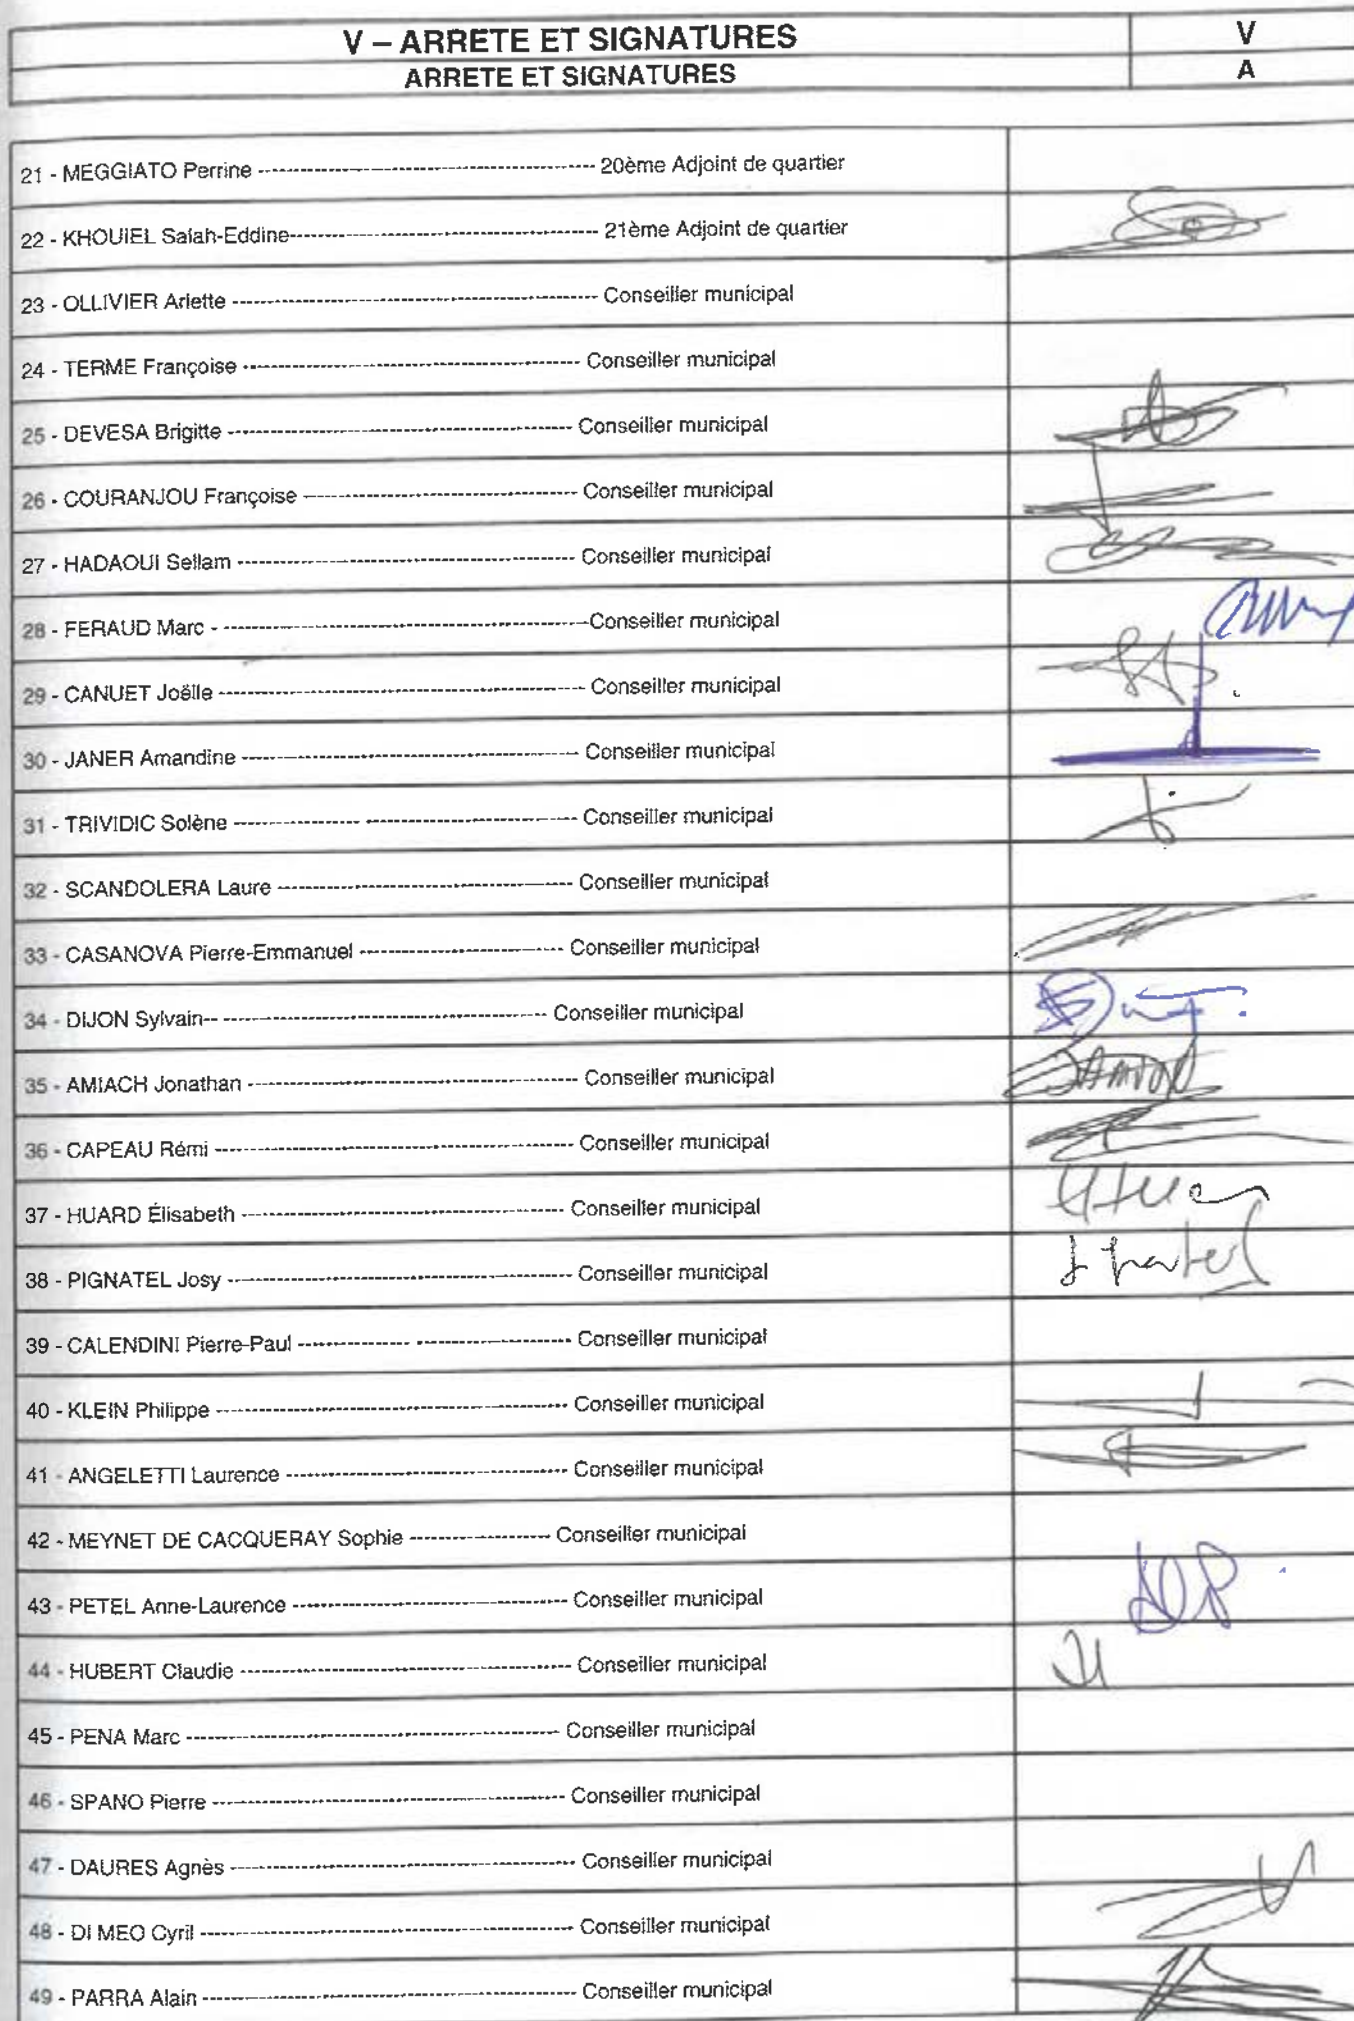 V – ARRETE ET SIGNATURES V
ARRETE ET SIGNATURES A
21 - MEGGIATO Perrine ---------- 20ème Adjoint de quartier
22 - KHOUIEL Salah-Eddine---------- 21ème Adjoint de quartier
23 - OLLIVIER Arlette ---------- Conseiller municipal
24 - TERME Françoise ---------- Conseiller municipal
25 - DEVESA Brigitte ---------- Conseiller municipal
26 - COURANJOU Françoise ---------- Conseiller municipal
27 - HADAOUI Sellam ---------- Conseiller municipal
28 - FERAUD Marc ---------- Conseiller municipal
29 - CANUET Joëlle ---------- Conseiller municipal
30 - JANER Amandine ---------- Conseiller municipal
31 - TRIVIDIC Solène ---------- Conseiller municipal
32 - SCANDOLERA Laure ---------- Conseiller municipal
33 - CASANOVA Pierre-Emmanuel ---------- Conseiller municipal
34 - DIJON Sylvain---------- Conseiller municipal
35 - AMIACH Jonathan ---------- Conseiller municipal
36 - CAPEAU Rémi ---------- Conseiller municipal
37 - HUARD Élisabeth ---------- Conseiller municipal
38 - PIGNATEL Josy ---------- Conseiller municipal
39 - CALENDINI Pierre-Paul ---------- Conseiller municipal
40 - KLEIN Philippe ---------- Conseiller municipal
41 - ANGELETTI Laurence ---------- Conseiller municipal
42 - MEYNET DE CACQUERAY Sophie ---------- Conseiller municipal
43 - PETEL Anne-Laurence ---------- Conseiller municipal
44 - HUBERT Claudie ---------- Conseiller municipal
45 - PENA Marc ---------- Conseiller municipal
46 - SPANO Pierre ---------- Conseiller municipal
47 - DAURES Agnès ---------- Conseiller municipal
48 - DI MEO Cyril ---------- Conseiller municipal
49 - PARRA Alain ---------- Conseiller municipal